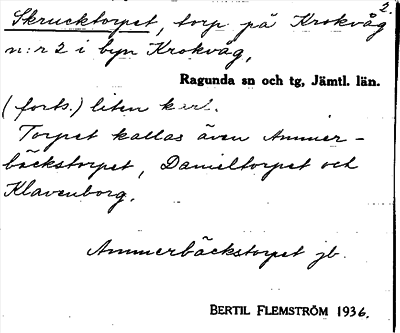 2.
Skrucktorpet, torp på Krokvåg
n:r 2 i byn Krokvåg,
Ragunda sn och tg, Jämtl. län.
(forts.) liten
Torpet kallas även Ammer-
bäckstorpet, Danieltorpet och
Klavenborg.
Ammerbäckstorpet jb.
BERTIL FLEMSTRÖM 1936.